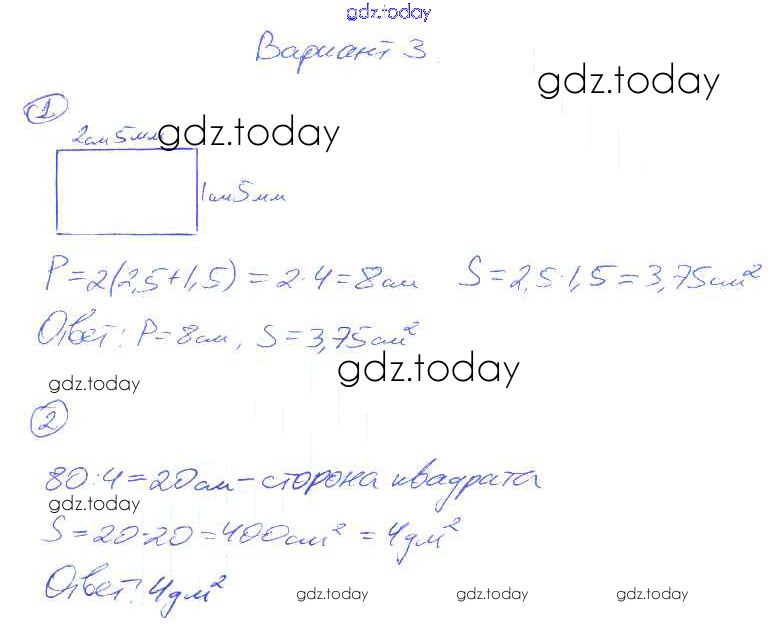 gdz.today
Вариант 3
gdz.today
1
2см 5мм gdz.today
1см 5мм
P=2(2,5+1,5)=2·4=8см S=2,5·1,5=3,75см²
Ответ: P=8см, S=3,75см²
gdz.today
gdz.today
2
80:4=20см-сторона квадрата
gdz.today
S=20·20=400см²=4дм²
Ответ: 4дм²
gdz.today gdz.today gdz.today